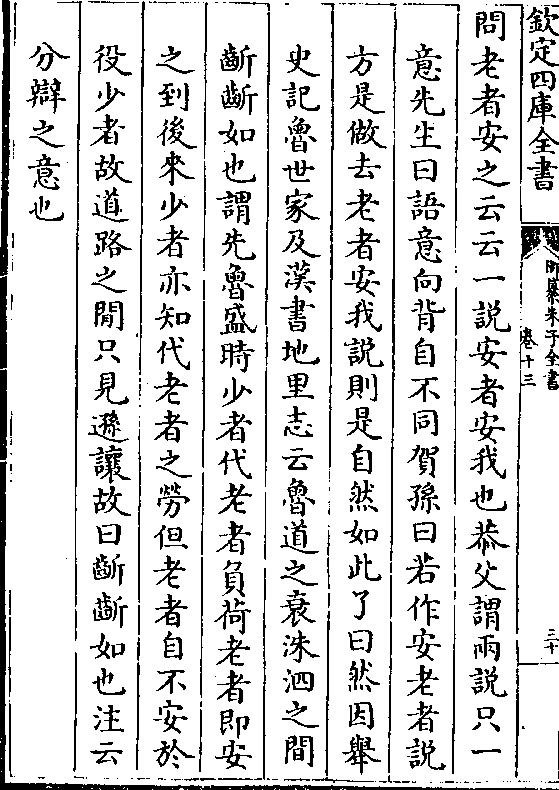 欽定四庫全書
御纂朱子全書
卷十三
三十
問老者安之云云一說安者安我也恭父謂兩說只一
意先生曰語意向背自不同賀孫曰若作安老者說
方是做去老者安我說則是自然如此了曰然因舉
史記魯世家及漢書地里志云魯道之衰洙泗之間
齗齗如也謂先魯盛時少者代老者負荷老者即安
之到後來少者亦知代老者之勞但老者自不安於
役少者故道路之間只見遜讓故曰齗齗如也注云
分辯之意也